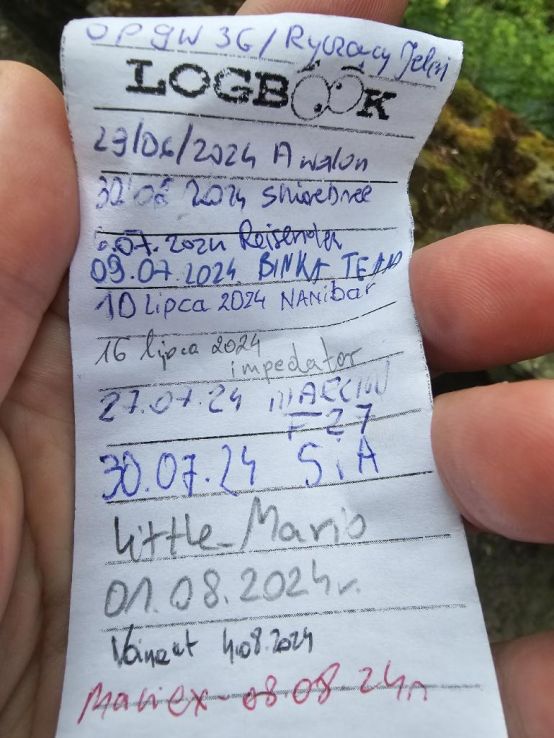 OP9W3G/Ryczący Jeleń
LOGBOOK
29/06/2024 Awalon
30 06 2024 shirebree
.07.2024 Reisender
09.07.2024 BINKA TEAM
10 Lipca 2024 NANibar
16 lipca 2024
impedator
27.07.24 MARCIN
F27
30.07.24 SiA
Little_Mario
01.08.2024r.
4.08.2024
Maniex-08-08-24r